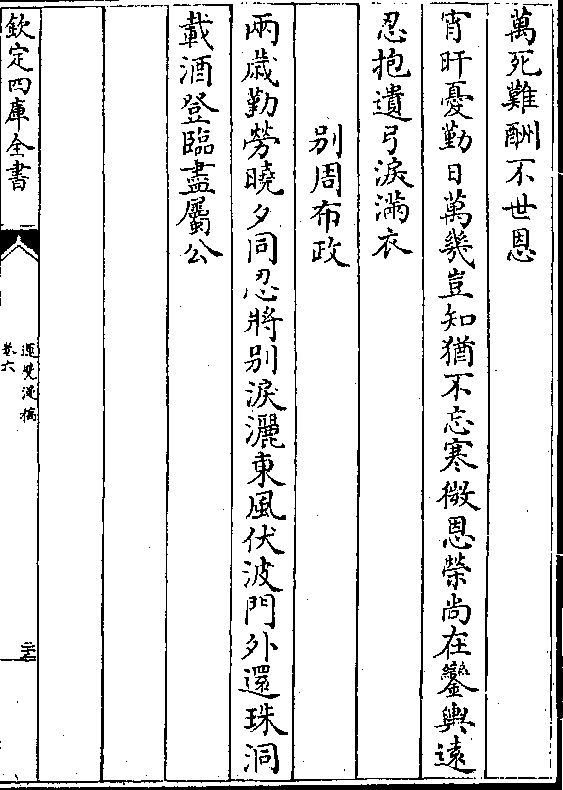 萬死難酬不世恩
宵旰憂勤日萬幾豈知猶不忘寒微恩榮尚在鑾輿遠
忍抱遺弓淚滿衣
别周布政
兩歲勤勞曉夕同忍將别淚灑東風伏波門外還珠洞
載酒登臨盡屬公
欽定四庫全書
卷六